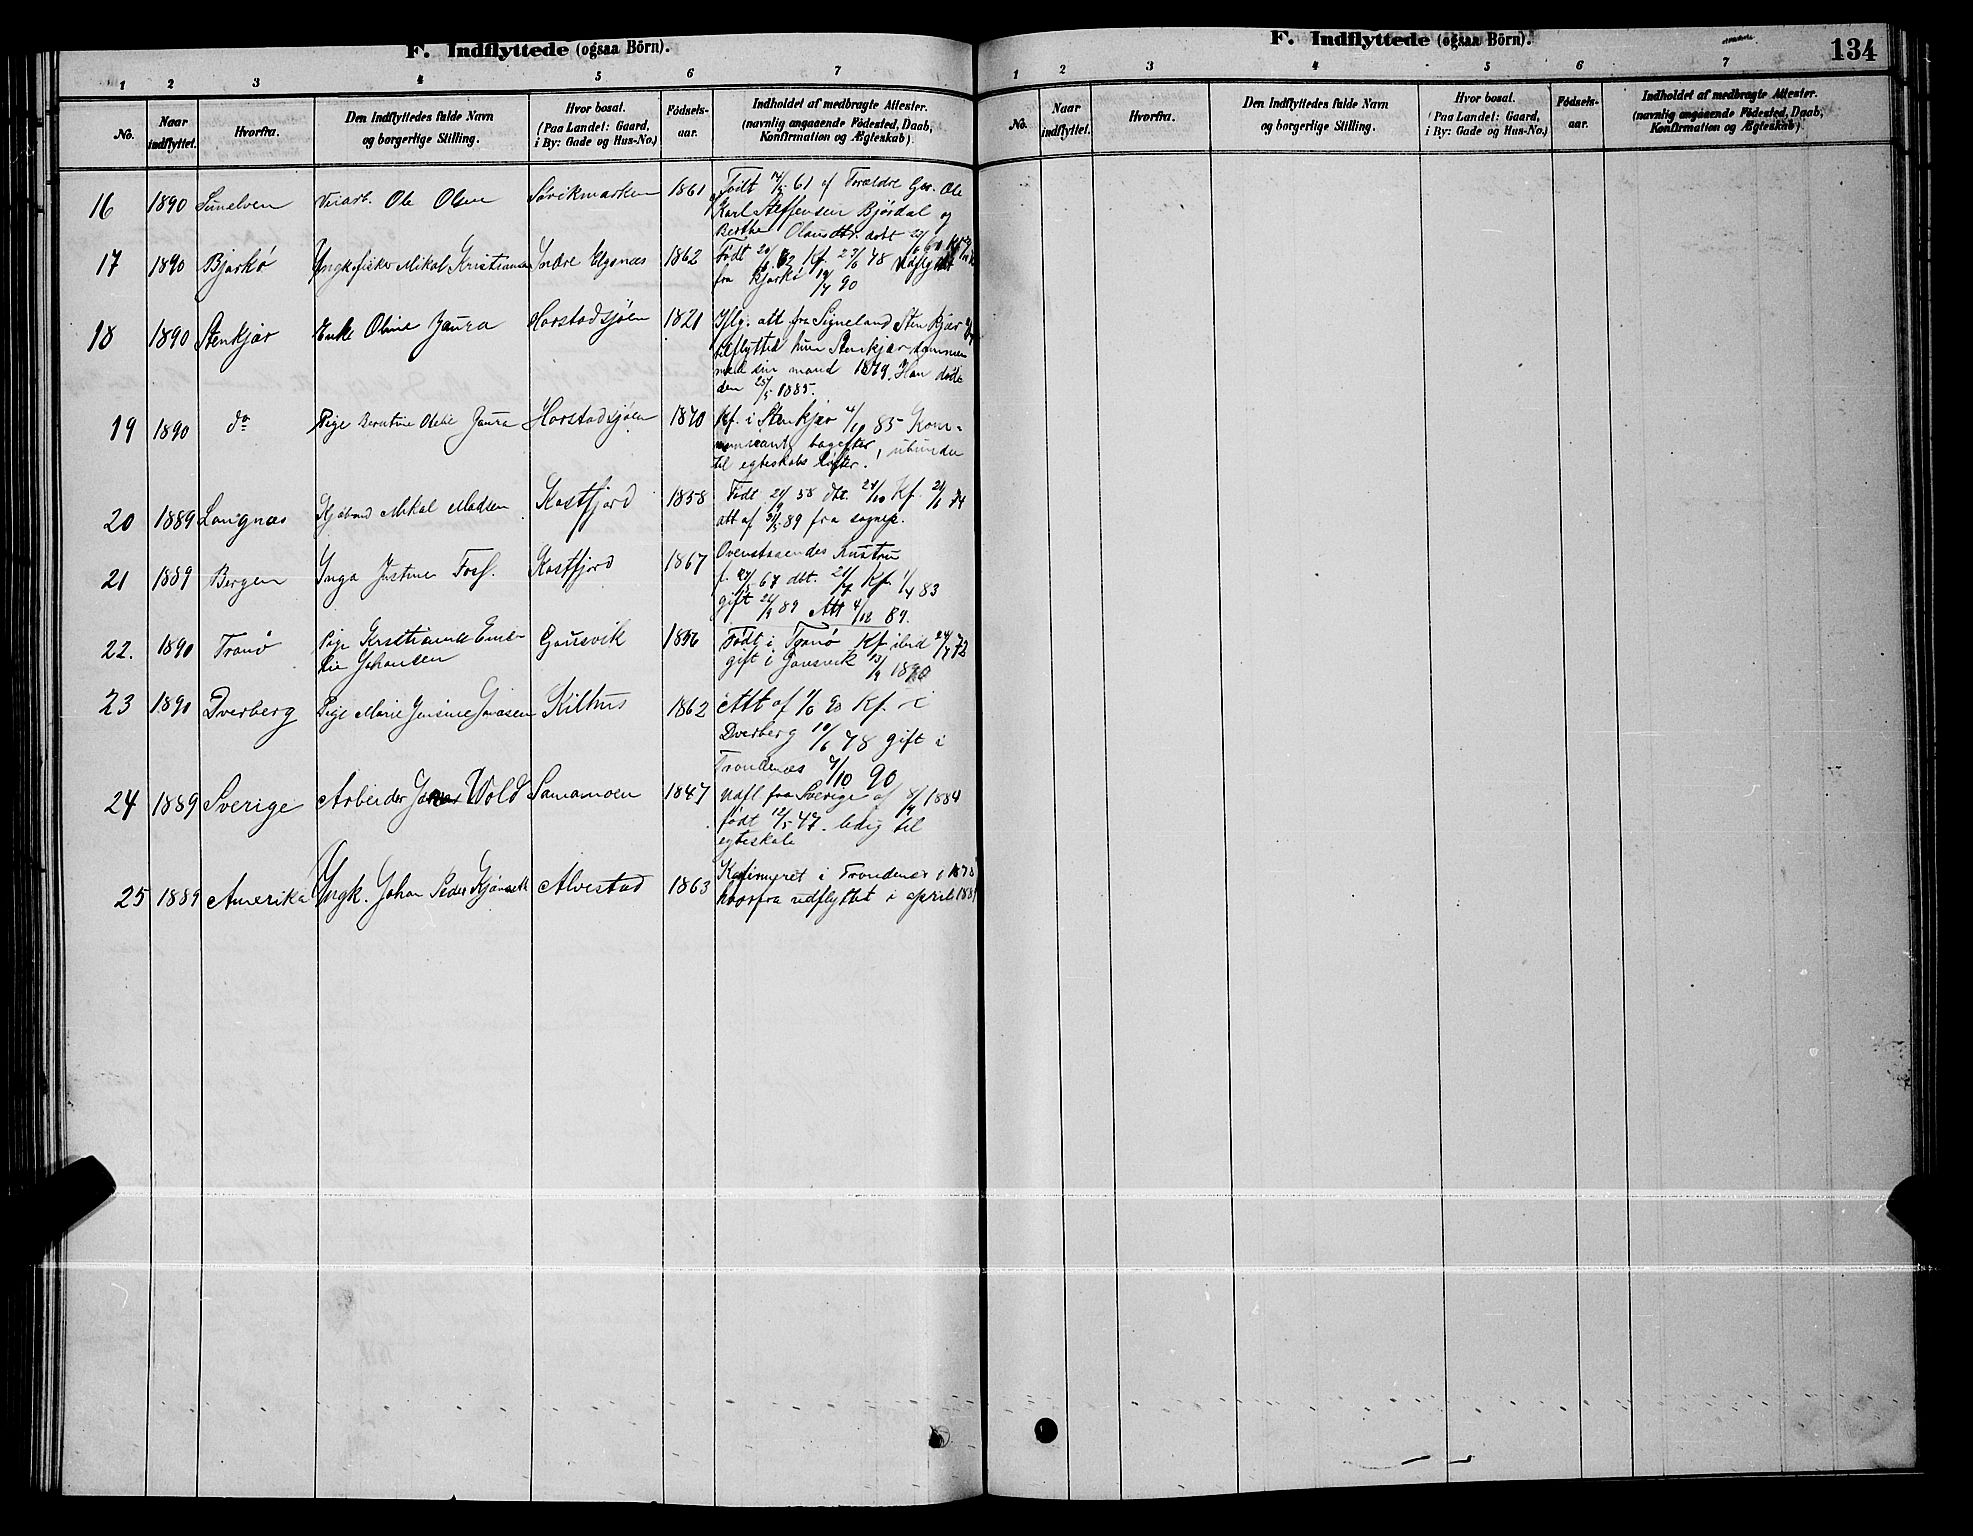 F. Indflyttede (ogsaa Börn).
1 2 3 4 5 6 7
No. Naar indflyttet. Hvorfra. Den Indflyttedes fulde Navn og borgerlige Stilling. Hvor bosat. (Paa Landet: Gaard, i By: Gade og Hus-No.) Födsels-aar. Indholdet af medbragte Attester. (navnlig angaaende Födested, Daab, Konfirmation og Ægteskab).
16 1890 Sunelven Ole Olsen Sørvikmarken 1861 Født 61 af Forældre Ole
Karl Steffensen Bjørdal og
Berthe Olausdtr. døbt
17 1890 Bjarkø Ungk fisker Mikal Kristiansen Indre Elgsnæs 1862 Født 62 Kf. 23/6 78
fra Bjarkø 90
18 1890 Stenkjær Enke Oline Zaura Harstadsjøen 1821 Iflg. att fra Stenkjær
tilflytted hun Stenkjær sammen
med sin mand 1879. Han døde
den 25/5 1885.
19 1890 do Pige Zaura Harstadsjøen 1870 Kf. i Stenkjær 4/10 85 Kom-
bagefter, ubunden
til egteskabs løfter.
20 1889 Langnæs Mikal Madsen Kastfjord 1858 Født 58 Kf. 74
att af 31/5 89 fra sognepr.
21 1889 Bergen Inga Justine Kastfjord 1867 Ovenstaaendes hustru
f. 67 dbt. Kf. 1/4 83
gift 89 Att 4/12 89.
22. 1890 Tranø Pige Kristianne Emi-
lie Johansen Gausvik 1856 Født i Tranø Kf ibid 72
gift i Gausvik 1890
23 1890 Dverberg Pige Marie Jensine Jonasen Kilhus 1862 Att af 90 Kf. i
Dverberg 78 gift i
Trondenæs 90
24 1889 Sverige Arbeider Jonas Wold Samamoen 1847 Udfl fra Sverige af 1884
født 12/5 47. ledig til
egteskab
25 1889 Amerika Ungk. Johan Peder Alvestad 1863 Konfirmeret i Trondenæs
hvorfra udflyttet i april
F. Indflyttede (ogsaa Börn).
134
1 2 3 4 5 6 7
No. Naar indflyttet. Hvorfra. Den Indflyttedes fulde Navn og borgerlige Stilling. Hvor bosat. (Paa Landet: Gaard, i By: Gade og Hus-No.) Födsels-aar. Indholdet af medbragte Attester. (navnlig angaaende Födested, Daab, Konfirmation og Ægteskab).